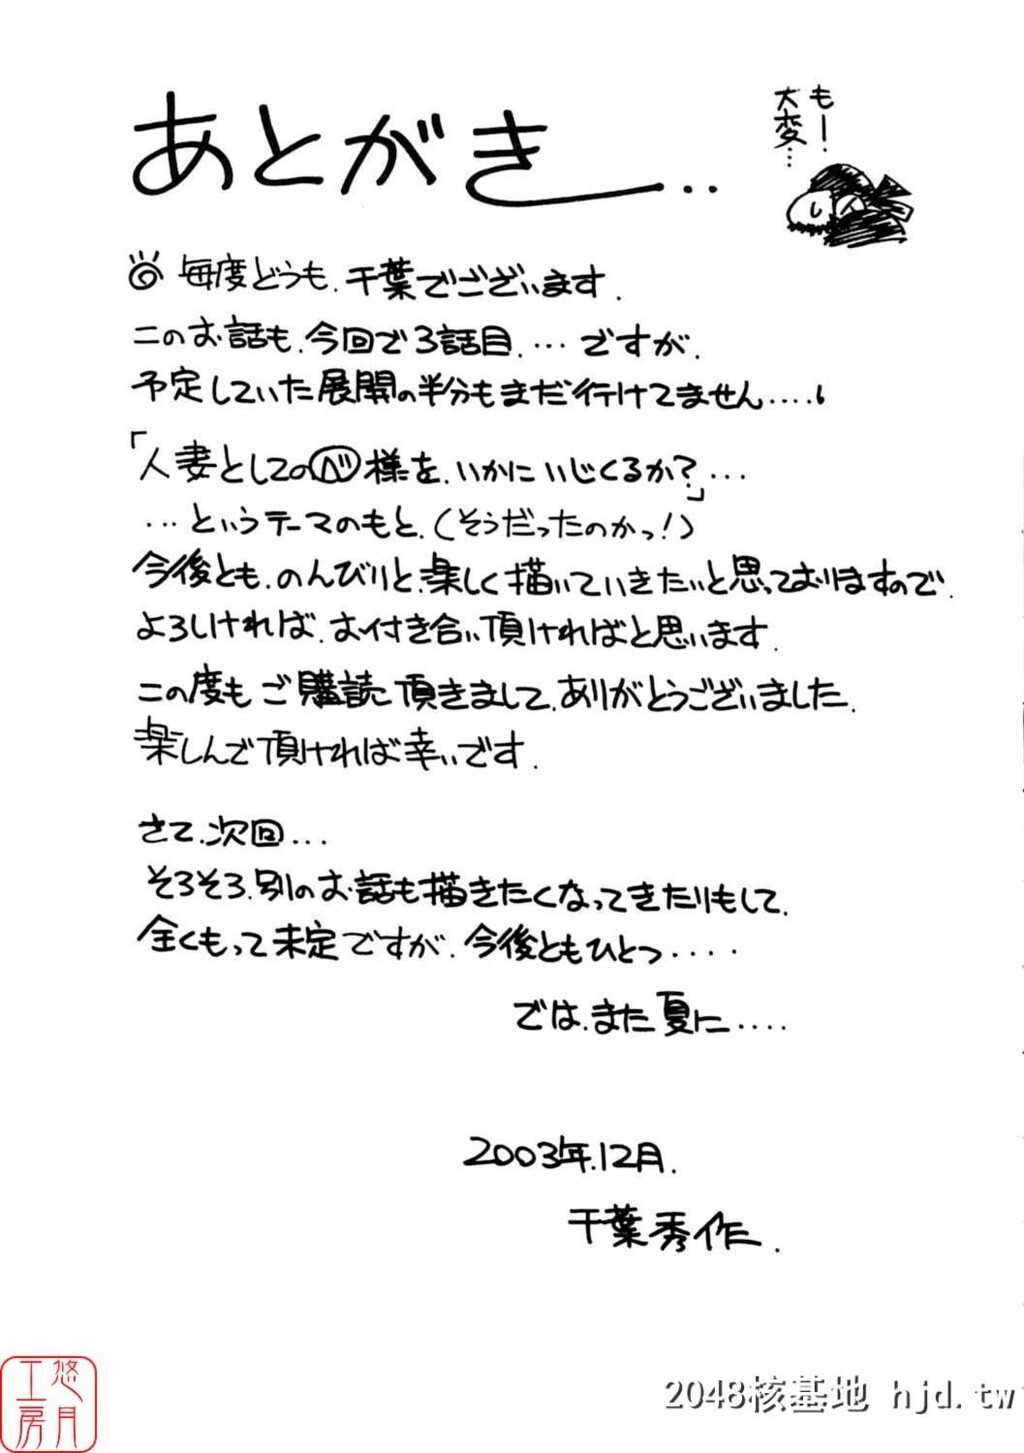 あとがき...
もー!
大変...
毎度どうも.千葉でございます.
このお話も.今回で3話目.…ですが.
予定していた展開の半分もまだ行けてません....
「人妻としてのベ様を.いかにいじくるか?」...
...というテーマのもと.(そうだったのかっ!)
今後とも.のんびりと.楽しく描いていきたいと思っておりますので.
よろしければ.お付き合い頂ければと思います.
この度もご購読頂きまして.ありがとうございました.
楽しんで頂ければ幸いです.
さて.次回...
そろそろ.別のお話も描きたくなってきたりもして.
全くもって未定ですが.今後ともひとつ....
では.また夏に....
2003年.12月.
千葉秀作.
悠月工房
2048核基地 hjd.tw